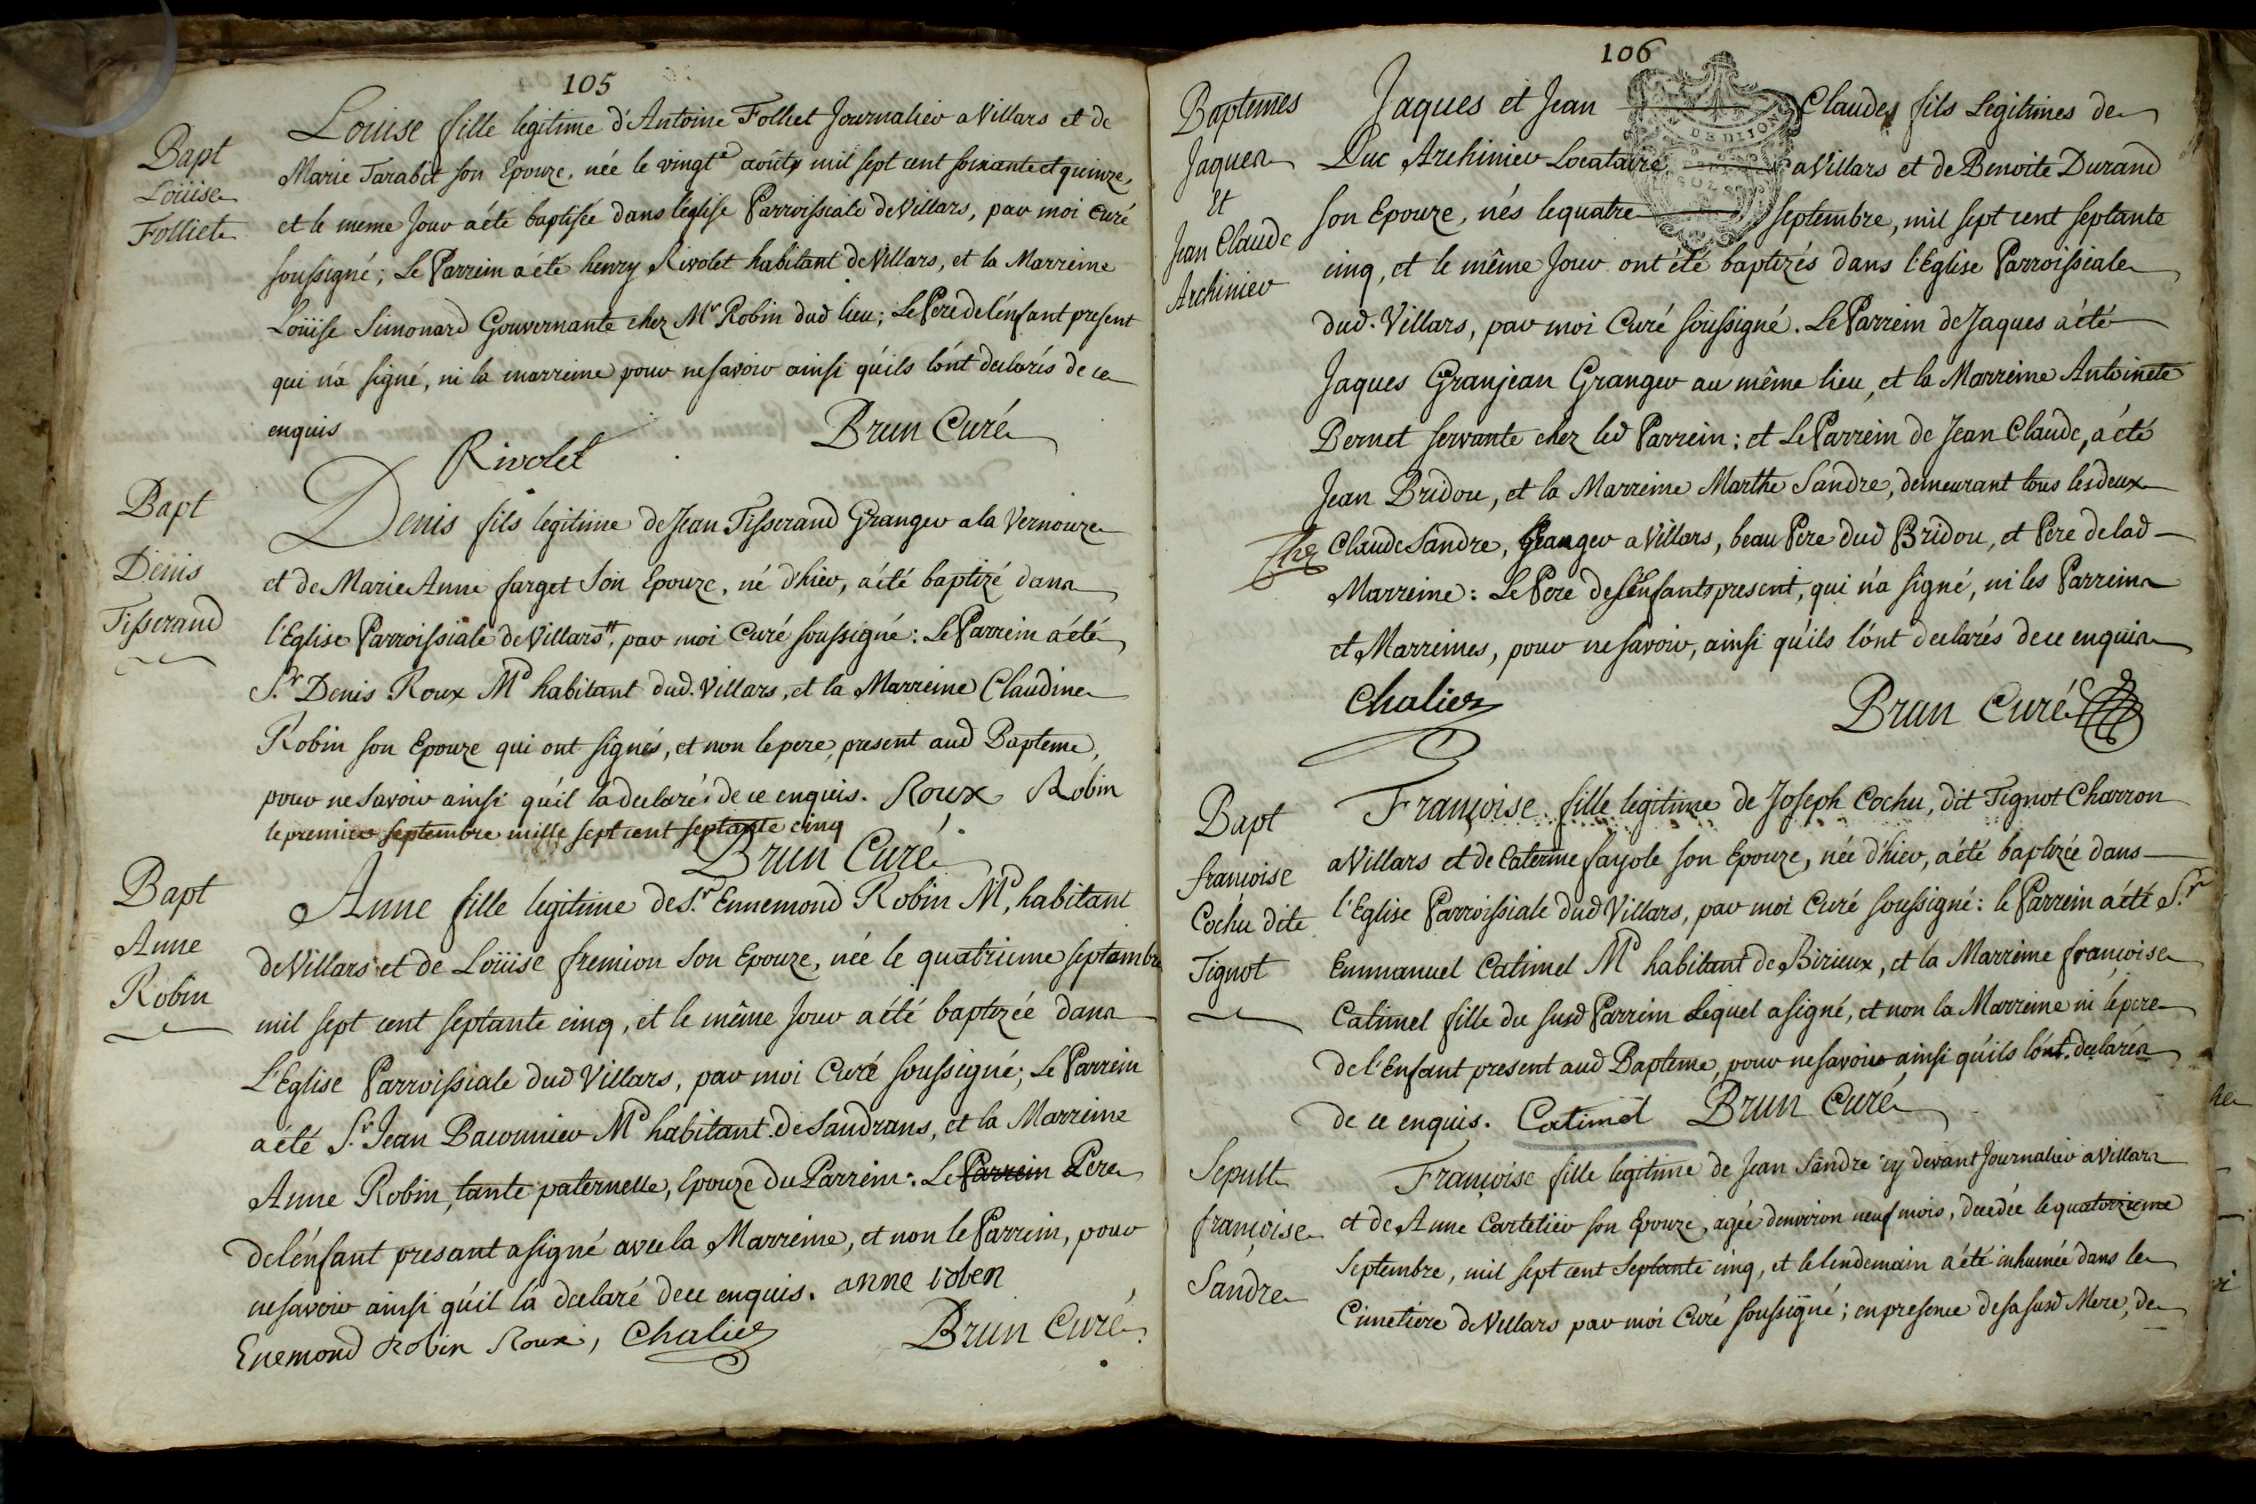 105
Bapt
Loüise
Folliet
Loüise fille legitime d'Antoine Folliet Journalier a Villars et de
Marie Tarabit son Epouze, née le vingt août mil sept cent soixante et quinze,
et le meme Jour a été baptisée dans l'eglise Parroissiale de Villars, par moi Curé
soussigné; Le Parrein a été henry Rivolet habitant de Villars, et la Marreine
Loüise Simonard Gouvernante chez Mr Robin dud lieu; Le Pere de l'énfant present
qui n'a signé, ni la marreine pour ne savoir ainsi qu'ils l'ont declarés de ce
enquis
Rivolet
Brun Curé
Bapt
Denis
Tisserand
Denis fils legitime de Jean Tisserand Granger a la Vernouze
et de Marie Anne farget Son Epouze, né d'hier, a été baptizé dans
l'Eglise Parroissiale de Villars, par moi Curé soussigné: Le Parrein a été
Sr Denis Roux Md habitant dud. Villars, et la Marreine Claudine
Robin son Epouze qui ont signés, et non le pere, present aud Bapteme,
pour ne savoir ainsi qu'il la declaré de ce enquis. Roux Robin
le premier septembre mille sept cent septante cinq
Brun Curé
Bapt
Anne
Robin
Anne fille legitime de Sr Ennemond Robin Md, habitant
de Villars et de Loüise fremion Son Epouze, née le quatrieme septambre
mil sept cent septante cinq, et le même Jour a été baptizée dans
L'Eglise Parroissiale dud Villars, par moi Curé soussigné; Le Parrein
a été Sr Jean Baconnier Md habitant de Sandrans, et la Marreine
Anne Robin, tante paternelle, Epouze du Parrein: Le Parrein Pere
de l'énfant presant a signé avec la Marreine, et non le Parrein, pour
ne savoir ainsi qu'il la declaré de ce enquis. anne roben
Enemond Robin Roux, Chalier
Brun Curé
106
Baptemes
Jaques
Et
Jean Claude
Archinier
Jaques et Jean Claudes fils Legitimes de
Luc Archinier Locataire a Villars et de Benoite Durand
son Epouze, nés le quatre septembre, mil sept cent septante
cinq, et le même Jour ont été baptizés dans l'Eglise Parroissiale
dud. Villars, par moi Curé soussigné. Le Parrein de Jaques a été
Jaques Granjean Granger au même lieu, et la Marreine Antoinete
Bernet servante chez led Parrein: et Le Parrein de Jean Claude, a été
Jean Bridou, et la Marreine Marthe Sandre, demeurant tous les deux
chez Claude Sandre, Granger a Villars, beau Pere dud Bridou, et Pere de lad
Marreine: Le Pere des Enfants present, qui n'a signé, ni les Parreins
et Marreines, pour ne savoir, ainsi qu'ils l'ont declarés de ce enquis
Chalier
Brun Curé
Bapt
françoise
Cochu dite
Tignot
Françoise fille legitime de Joseph Cochu, dit Tignot Charron
a Villars et de Caterine fayole son Epouze, née d'hier, a été baptizée dans
l'Eglise Parroissiale dud Villars, par moi Curé soussigné: le Parrein a été Sr
Emmanuel Catimel Md habitant de Birieux, et la Marreine françoise
Catimel fille du susd Parrein Lequel a signé, et non la Marreine ni le pere
de l'Enfant present aud Bapteme, pour ne savoir ainsi qu'ils l'ont declarés
de ce enquis. Catimel Brun Curé
Sepult
françoise
Sandre
Françoise fille legitime de Jean Sandre cy devant Journalier a Villars
et de Anne Cartelier son Epouze, agée d'environ neuf mois, decedée le quatorzieme
Septembre, mil sept cent Septante cinq, et le lendemain a été inhumée dans le
Cimetiere de Villars par moi Curé soussigné; en presence de sa susd Mere, de